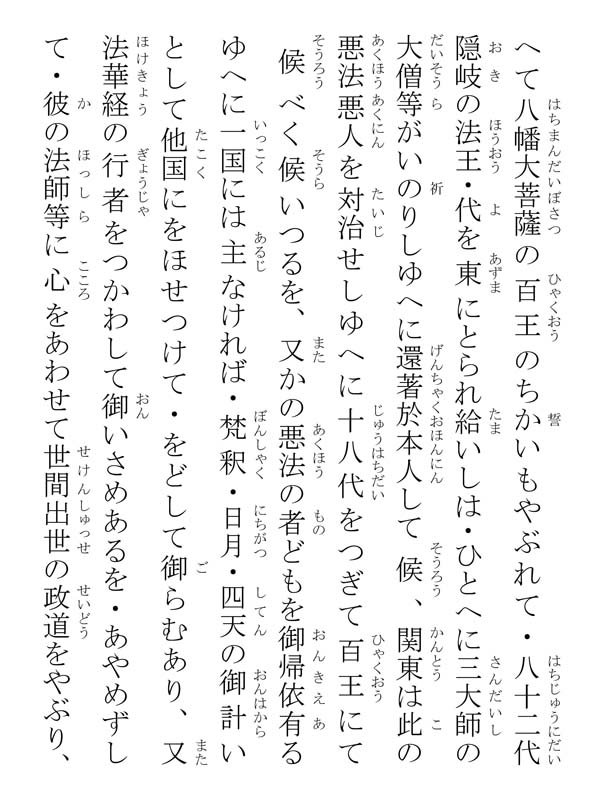 へて八幡大菩薩の百王のちかいもやぶれて・八十二代
隠岐の法王・代を東にとられ給いしは・ひとへに三大師の
大僧等がいのりしゆへに還著於本人して候、関東は此の
悪法悪人を対治せしゆへに十八代をつぎて百王にて
候べく候いつるを、又かの悪法の者どもを御帰依有る
ゆへに一国には主なければ・梵釈・日月・四天の御計い
として他国にをほせつけて・をどして御らむあり、又
法華経の行者をつかわして御いさめあるを・あやめずし
て・彼の法師等に心をあわせて世間出世の政道をやぶり、